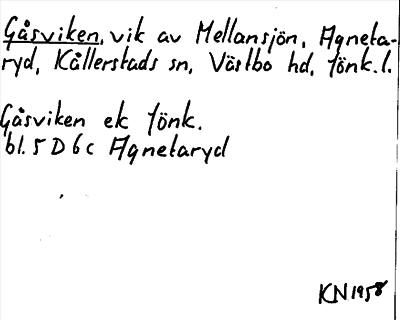 Gåsviken, vik av Mellansjön, Agneta-
ryd, Kållerstads sn, Västbo hd, Jönk.l.
Gåsviken ek Jönk.
bl. 5 D 6 c Agnetaryd
KN 1958